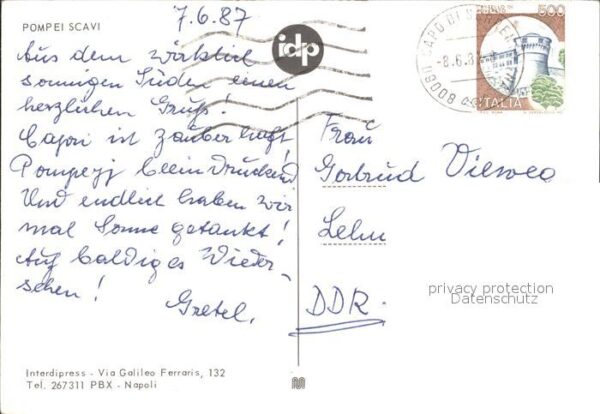 POMPEI SCAVI
7.6.87
Aus dem wirklich
sonnigen Süden einen
herzlichen Gruß!
Capri ist zauberhaft,
Pompeji beeindruckend
Und endlich haben wir
mal Sonne getankt!
Auf baldiges Wieder-
sehen!
Gretel.
Interdipress - Via Galileo Ferraris, 132
Tel. 267311 PBX - Napoli
idp
-8.6.8
80061
500
ITALIA
Frau
DDR.
privacy protection
Datenschutz